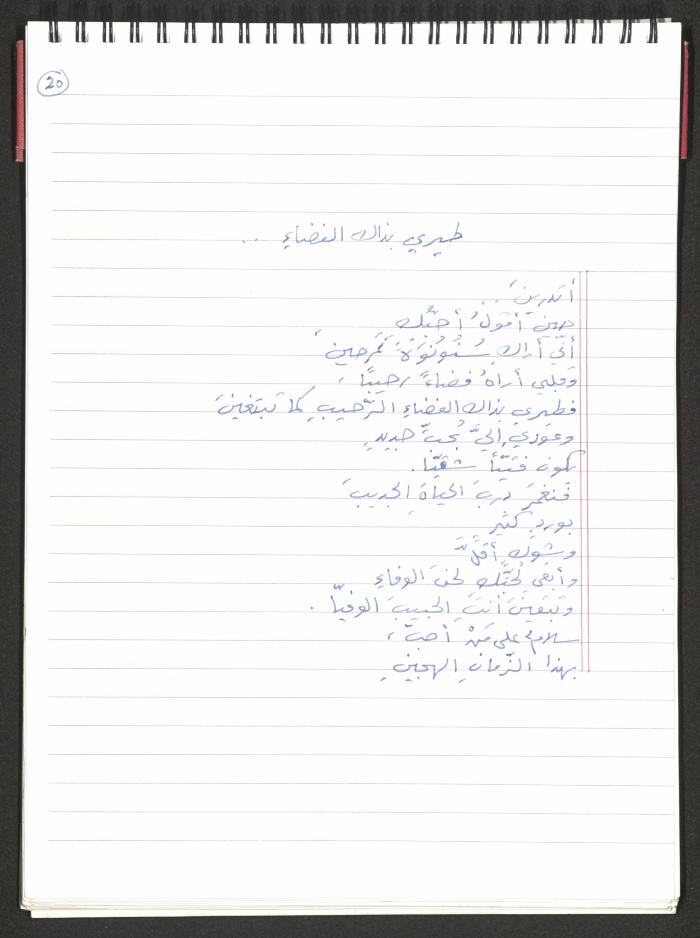 20
طيري بذاك الفضاءِ ..
أتدرينَ ..
حينَ أقولُ أحبُّكِ
أنّي أراكِ سُنُونُوَةً تمرحينَ
وقلبي أراهُ فضاءً رحيبًا ،
فطيري بذاك الفضاءِ الرَّحيبِ كما تبتغينَ
وعودي إليَّ بحبٍّ جديدٍ
يكون فتيّاً شقيّا .
فنغمرَ دربَ الحياةِ الجديبَ
بوردٍ كثيرٍ
وشوكٍ أقلَّ
وأبقى لحبّكِ لحنَ الوفاءِ
وتبقينَ أنتِ الحبيبَ الوفيّا .
سلامٌ على مَنْ أحبَّ ،
بهذا الزّمانِ الهجينِ